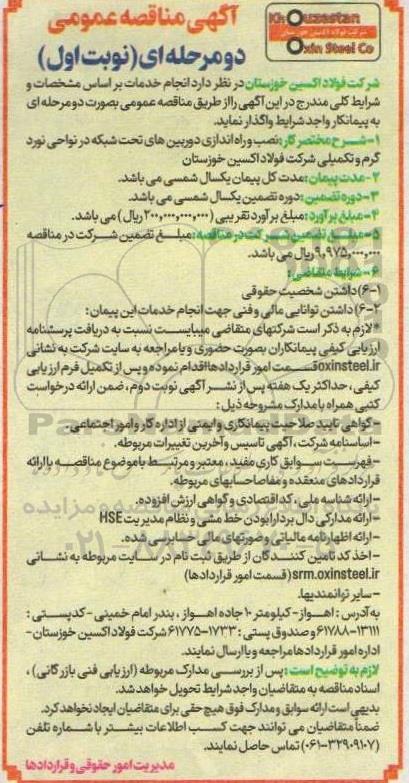 آگهی مناقصه عمومی
دو مرحله ای (نوبت اول)
Khouzestan
شرکت فولاد اکسین خوزستان
Oxin Steel Co
شرکت فولاد اکسین خوزستان در نظر دارد انجام خدمات بر اساس مشخصات و
شرایط کلی مندرج در این آگهی را از طریق مناقصه عمومی بصورت دو مرحله ای
به پیمانکار واجد شرایط واگذار نماید.
۱- شرح مختصر کار: نصب و راه اندازی دوربین های تحت شبکه در نواحی نورد
گرم و تکمیلی شرکت فولاد اکسین خوزستان
۲- مدت پیمان: مدت کل پیمان یکسال شمسی می باشد.
۳- دوره تضمین: دوره تضمین یکسال شمسی می باشد.
۴- مبلغ برآورد: مبلغ برآورد تقریبی (۲۰۰,۰۰۰,۰۰۰,۰۰۰ ریال) می باشد.
۵- مبلغ تضمین شرکت در مناقصه: مبلغ تضمین شرکت در مناقصه
۹,۹۷۵,۰۰۰,۰۰۰ ریال می باشد.
۶- شرایط متقاضی:
۶-۱) داشتن شخصیت حقوقی
۶-۲) داشتن توانایی مالی و فنی جهت انجام خدمات این پیمان:
*لازم به ذکر است شرکتهای متقاضی میبایست نسبت به دریافت پرسشنامه
ارزیابی کیفی پیمانکاران بصورت حضوری و یا مراجعه به سایت شرکت به نشانی
oxinsteel.ir قسمت امور قراردادها اقدام نموده و پس از تکمیل فرم ارزیابی
کیفی، حداکثر یک هفته پس از نشر آگهی نوبت دوم، ضمن ارائه درخواست
کتبی همراه با مدارک مشروحه ذیل:
- گواهی تایید صلاحیت پیمانکاری و ایمنی از اداره کار و امور اجتماعی.
- اساسنامه شرکت، آگهی تاسیس و آخرین تغییرات مربوطه.
- فهرست سوابق کاری مفید، معتبر و مرتبط با موضوع مناقصه با ارائه
قراردادهای منعقده و مفاصاحسابهای مربوطه.
- ارائه شناسه ملی، کد اقتصادی و گواهی ارزش افزوده.
- ارائه مدارکی دال بر دارا بودن خط مشی و نظام مدیریت HSE
- ارائه اظهارنامه مالیاتی و صورتهای مالی حسابرسی شده.
- اخذ کد تامین کنندگان از طریق ثبت نام در سایت مربوطه به نشانی
srm.oxinsteel.ir (قسمت امور قراردادها)
- سایر توانمندیها.
به آدرس: اهواز- کیلومتر ۱۰ جاده اهواز، بندر امام خمینی - کدپستی:
۶۱۷۸۸-۱۳۱۱۱ و صندوق پستی: ۱۷۳۳-۶۱۷۷۵ شرکت فولاد اکسین خوزستان-
اداره امور قراردادها مراجعه و یا ارسال نمایند.
لازم به توضیح است: پس از بررسی مدارک مربوطه (ارزیابی فنی بازرگانی)،
اسناد مناقصه به متقاضیان واجد شرایط تحویل خواهد شد.
بدیهی است ارائه سوابق و مدارک فوق هیچ حقی برای متقاضیان ایجاد نخواهد کرد.
ضمناً متقاضیان می توانند جهت کسب اطلاعات بیشتر با شماره تلفن
(۰۶۱-۳۲۹۰۹۱۰۷) تماس حاصل نمایند.
مدیریت امور حقوقی و قراردادها